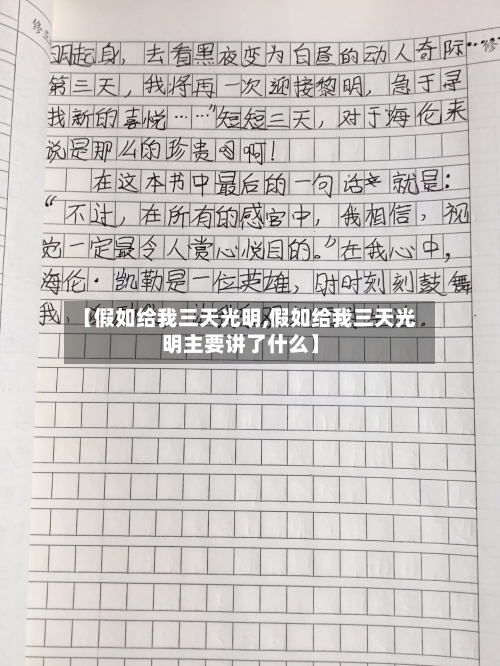 修
明起身，去看黑夜变为白昼的动人奇际……"
第三天，我将再一次迎接黎明，急于寻
找新的喜悦……"短短三天，对于海伦来
说是那么的珍贵啊！
在这本书中最后的一句话就是：
"不过，在所有的感官中，我相信，视
觉一定最令人赏心悦目的。"在我心中，
海伦·凯勒是一位英雄，时时刻刻鼓舞
我，
【假如给我三天光明,假如给我三天光
明主要讲了什么】